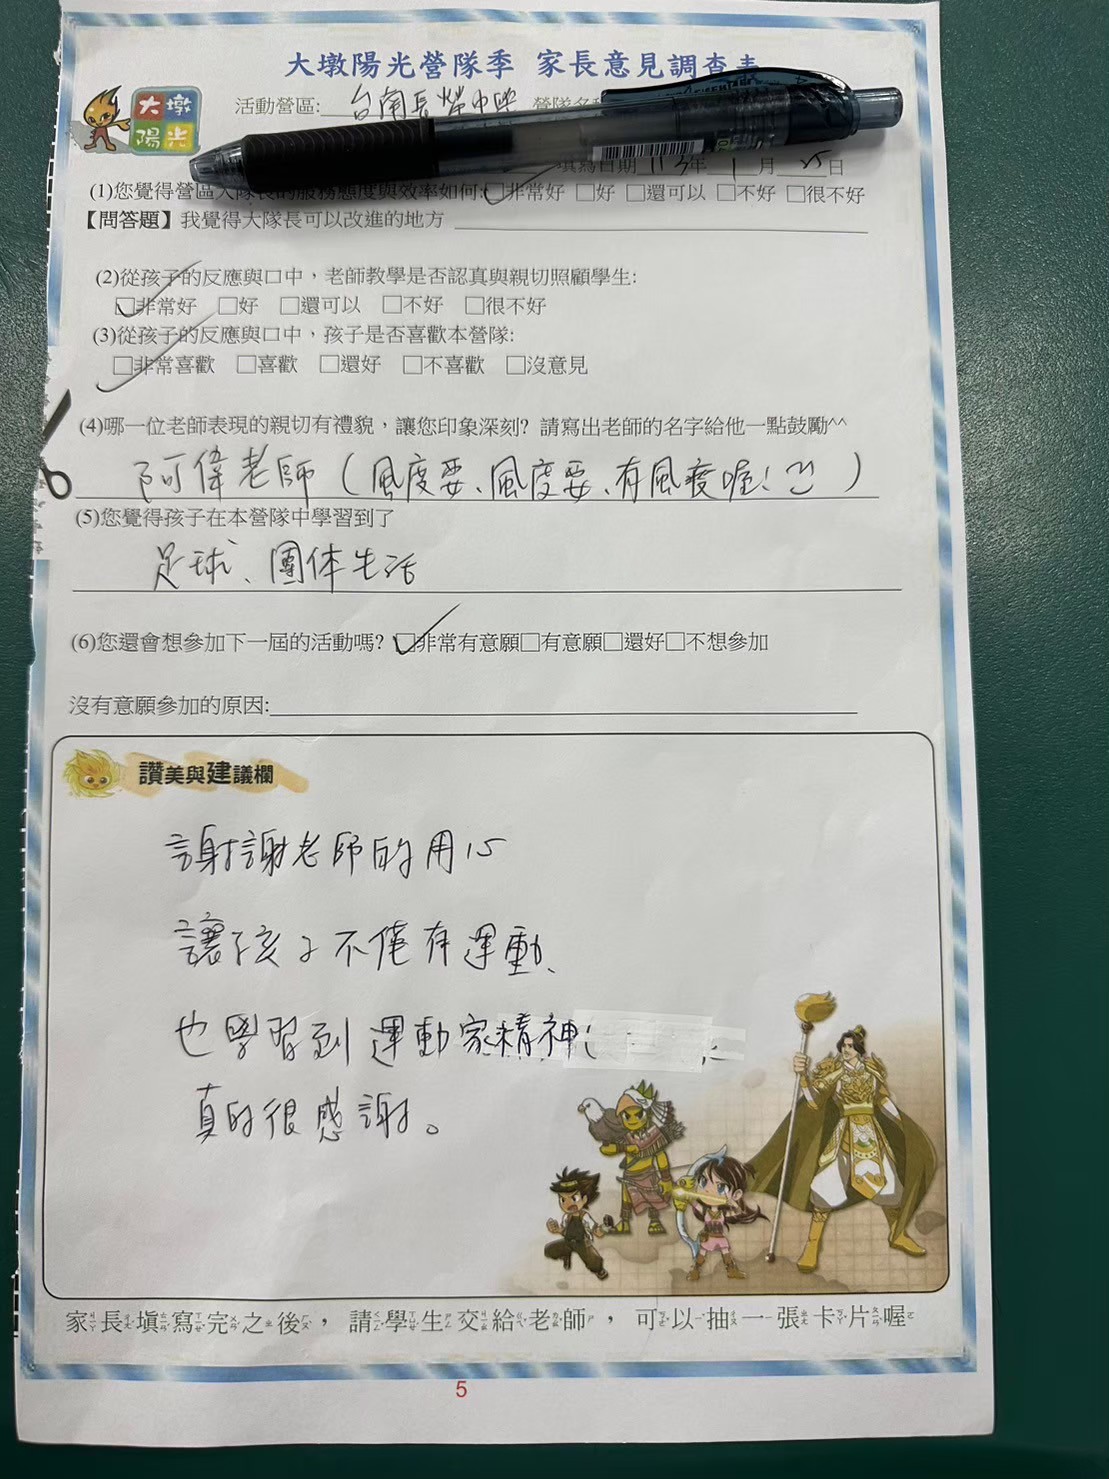 大墩陽光營隊季 家長意見調查表
大墩
陽光
活動營區: 台南長榮中學 營隊名稱
填寫日期 113年 1 月 25 日
(1)您覺得營區大隊長的服務態度與效率如何:☑非常好 □好 □還可以 □不好 □很不好
【問答題】我覺得大隊長可以改進的地方
(2)從孩子的反應與口中，老師教學是否認真與親切照顧學生:
☑非常好 □好 □還可以 □不好 □很不好
(3)從孩子的反應與口中，孩子是否喜歡本營隊:
☑非常喜歡 □喜歡 □還好 □不喜歡 □沒意見
(4)哪一位老師表現的親切有禮貌，讓您印象深刻? 請寫出老師的名字給他一點鼓勵^^
阿偉老師（風度要、風度要、有風度喔! ）
(5)您覺得孩子在本營隊中學習到了
足球、團体生活
(6)您還會想參加下一屆的活動嗎? ☑非常有意願□有意願□還好□不想參加
沒有意願參加的原因:
讚美與建議欄
謝謝老師的用心
讓孩子不僅有運動、
也學習到運動家精神
真的很感謝。
家長填寫完之後，請學生交給老師，可以抽一張卡片喔
5